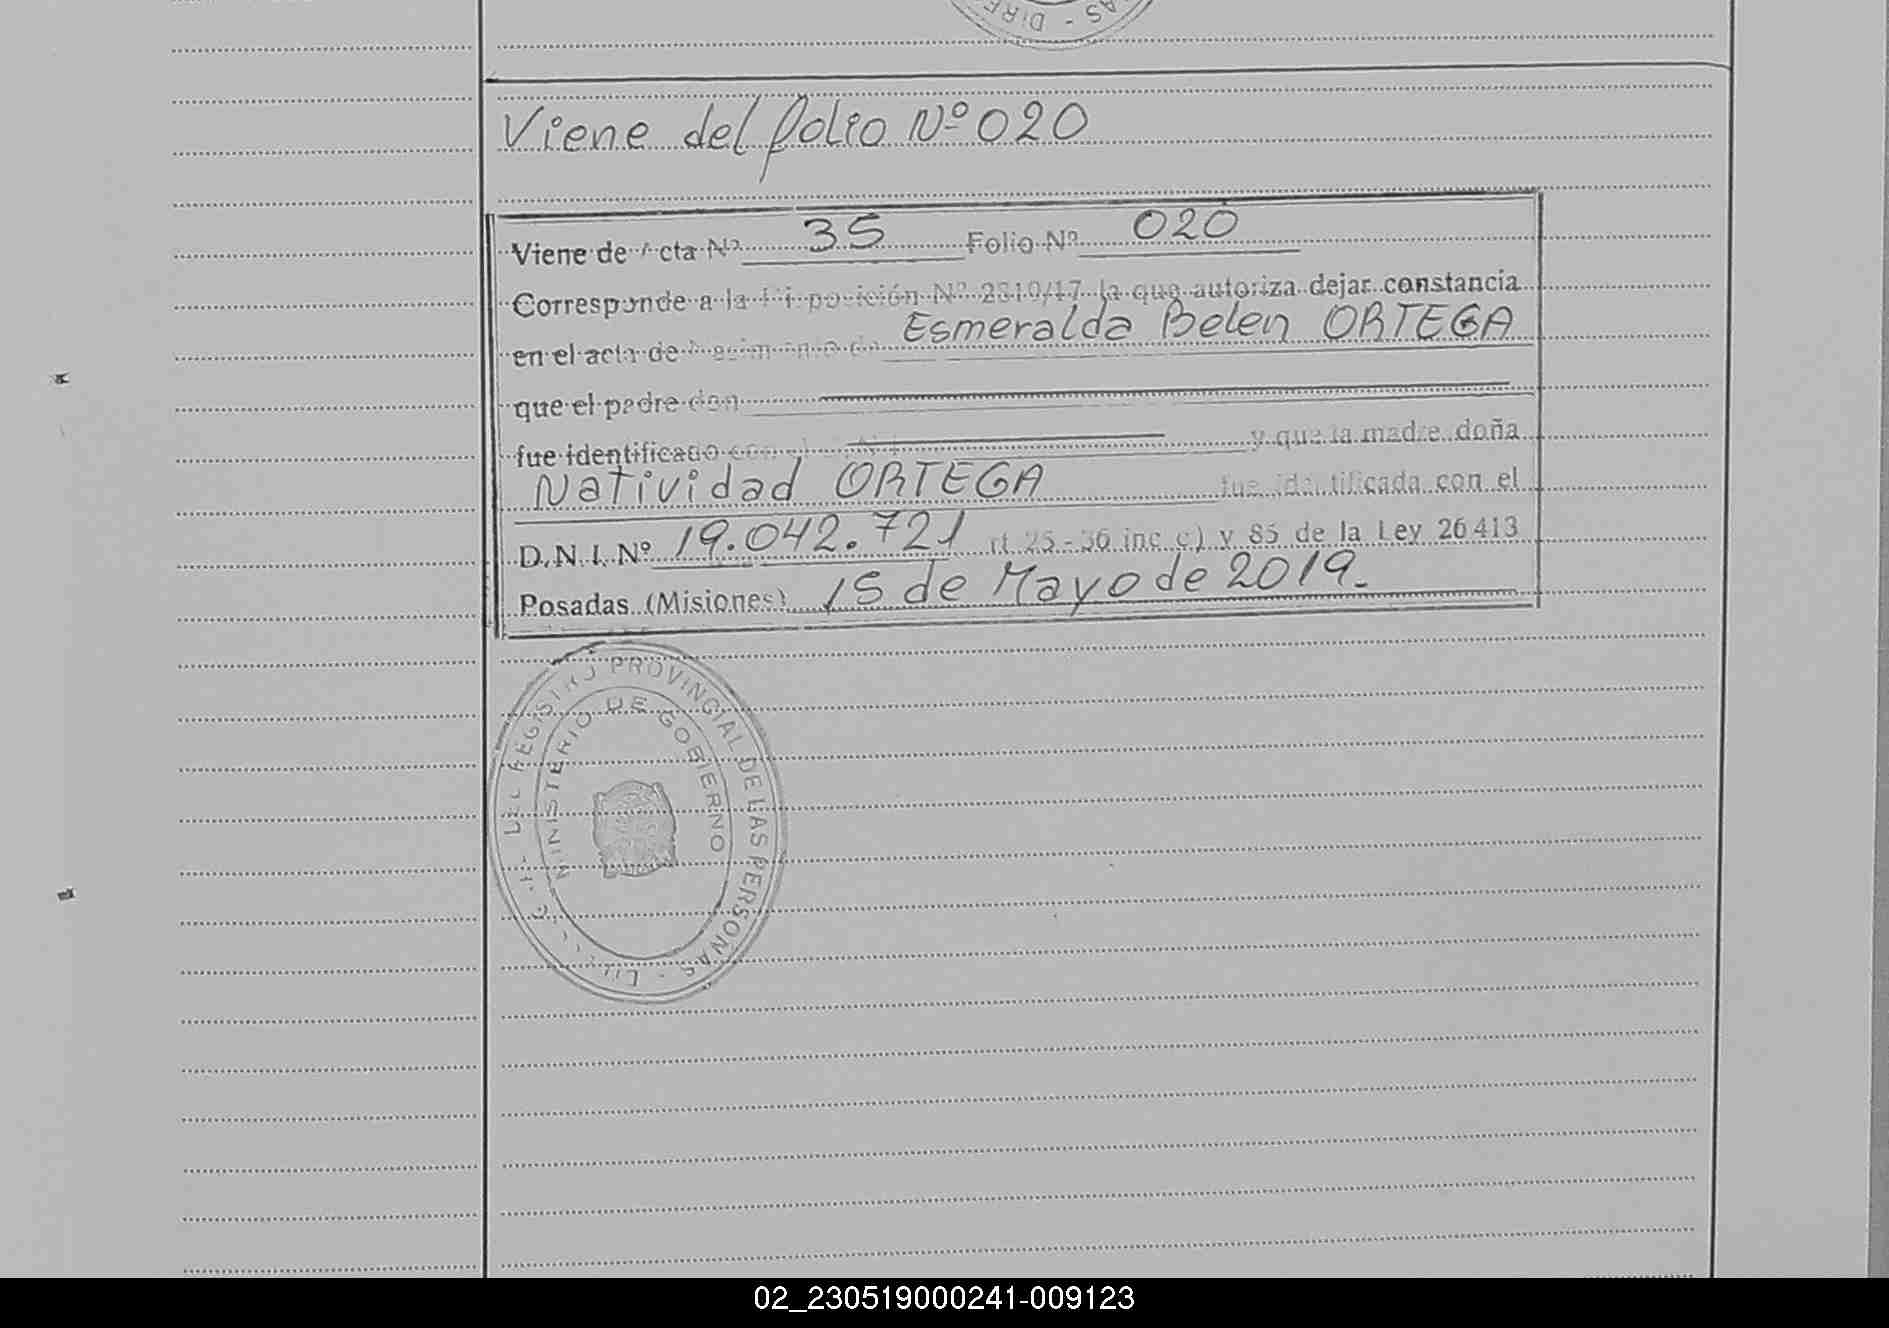 DIRE - AS
Viene del folio Nº 020
Viene de Acta Nº 35 Folio Nº 020
Corresponde a la Disposición Nº 2810/17 la que autoriza dejar constancia
en el acta de Nacimiento de Esmeralda Belen ORTEGA
que el padre don
fue identificado con el y que la madre doña
Natividad ORTEGA fue identificada con el
D.N.I. Nº 19.042.721 rt 25-36 inc c) y 85 de la Ley 26413
Posadas (Misiones) 15 de Mayo de 2019.
DEL REGISTRO PROVINCIAL DE LAS PERSONAS -
MINISTERIO DE GOBIERNO
02_230519000241-009123